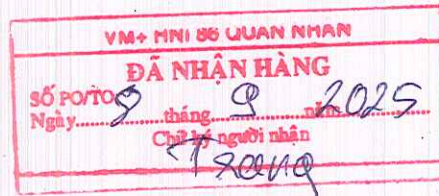 VM+ HNI 86 QUAN NHAN
ĐÃ NHẬN HÀNG
SỐ PO/TO
Ngày 9 tháng 9 năm 2025
Chữ ký người nhận
Trang